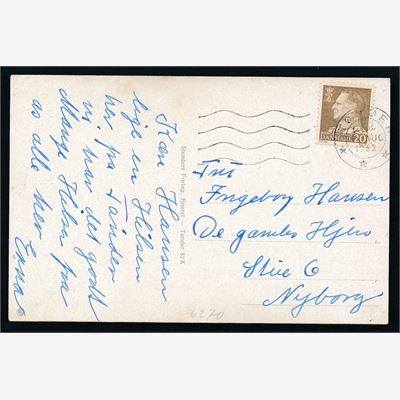 Kære Hansen
lige en Hilsen
her fra Tønder
vi har det godt
Mange Hilsn fra
os alle her
Enna
Stenders Forlag, Eneret. - Tønder 81 K
DANMARK 20
Fru
Ingeborg Hansen
De gamles Hjem
Stue 6
Nyborg
6270